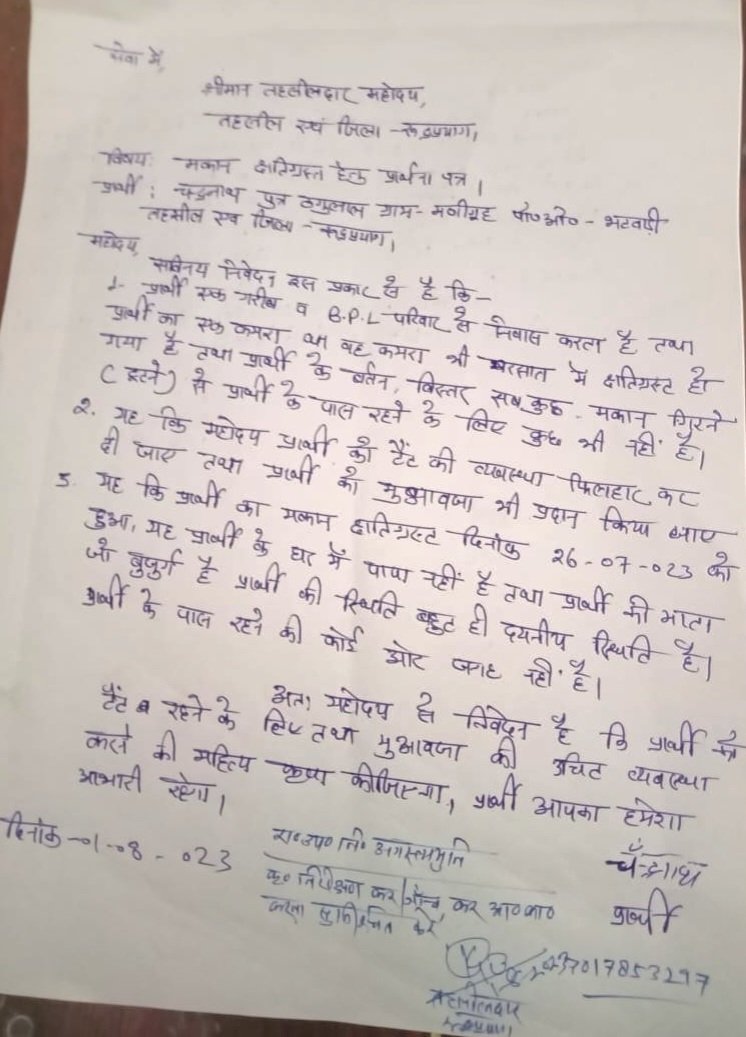 सेवा में,
श्रीमान तहसीलदार महोदय,
तहसील एवं जिला - रूद्रप्रयाग।
विषय: मकान क्षतिग्रस्त हेतु प्रार्थना पत्र।
प्रार्थी : चन्द्रनाथ पुत्र ठगुलाल ग्राम - मनीग्रह पो०ओ० - भटवाड़ी
तहसील एवं जिला - रूद्रप्रयाग।
महोदय,
सविनय निवेदन इस प्रकार से है कि -
1- प्रार्थी एक गरीब व B.P.L परिवार से निवास करता है तथा
प्रार्थी का एक कमरा था वह कमरा भी बरसात में क्षतिग्रस्त हो
गया है तथा प्रार्थी के बर्तन, बिस्तर सब कुछ मकान गिरने
(टूटने) से प्रार्थी के पास रहने के लिए कुछ भी नहीं है।
2. यह कि महोदय प्रार्थी को टैंट की व्यवस्था फिलहाट कर
दी जाए तथा प्रार्थी को मुआवजा भी प्रदान किया जाए
3. यह कि प्रार्थी का मकान क्षतिग्रस्त दिनांक 26-07-023 को
हुआ, यह प्रार्थी के घर में पापा नहीं है तथा प्रार्थी की माता
जो बुजुर्ग है प्रार्थी की स्थिति बहुत ही दयनीय स्थिति है।
प्रार्थी के पास रहने की कोई ओर जगह नहीं है।
अतः महोदय से निवेदन है कि प्रार्थी को
टैंट रहने के लिए तथा मुआवजा की उचित व्यवस्था
करने की कृपा कीजिएगा, प्रार्थी आपका हमेशा
आभारी रहेगा।
दिनांक -01-08-023
रा०उ०नि० अगस्त्यमुनि
कृ० निरीक्षण कर/जाँच कर आ०का०
करना सुनिश्चित करें
प्रार्थी
7017853297
तहसीलदार
रूद्रप्रयाग